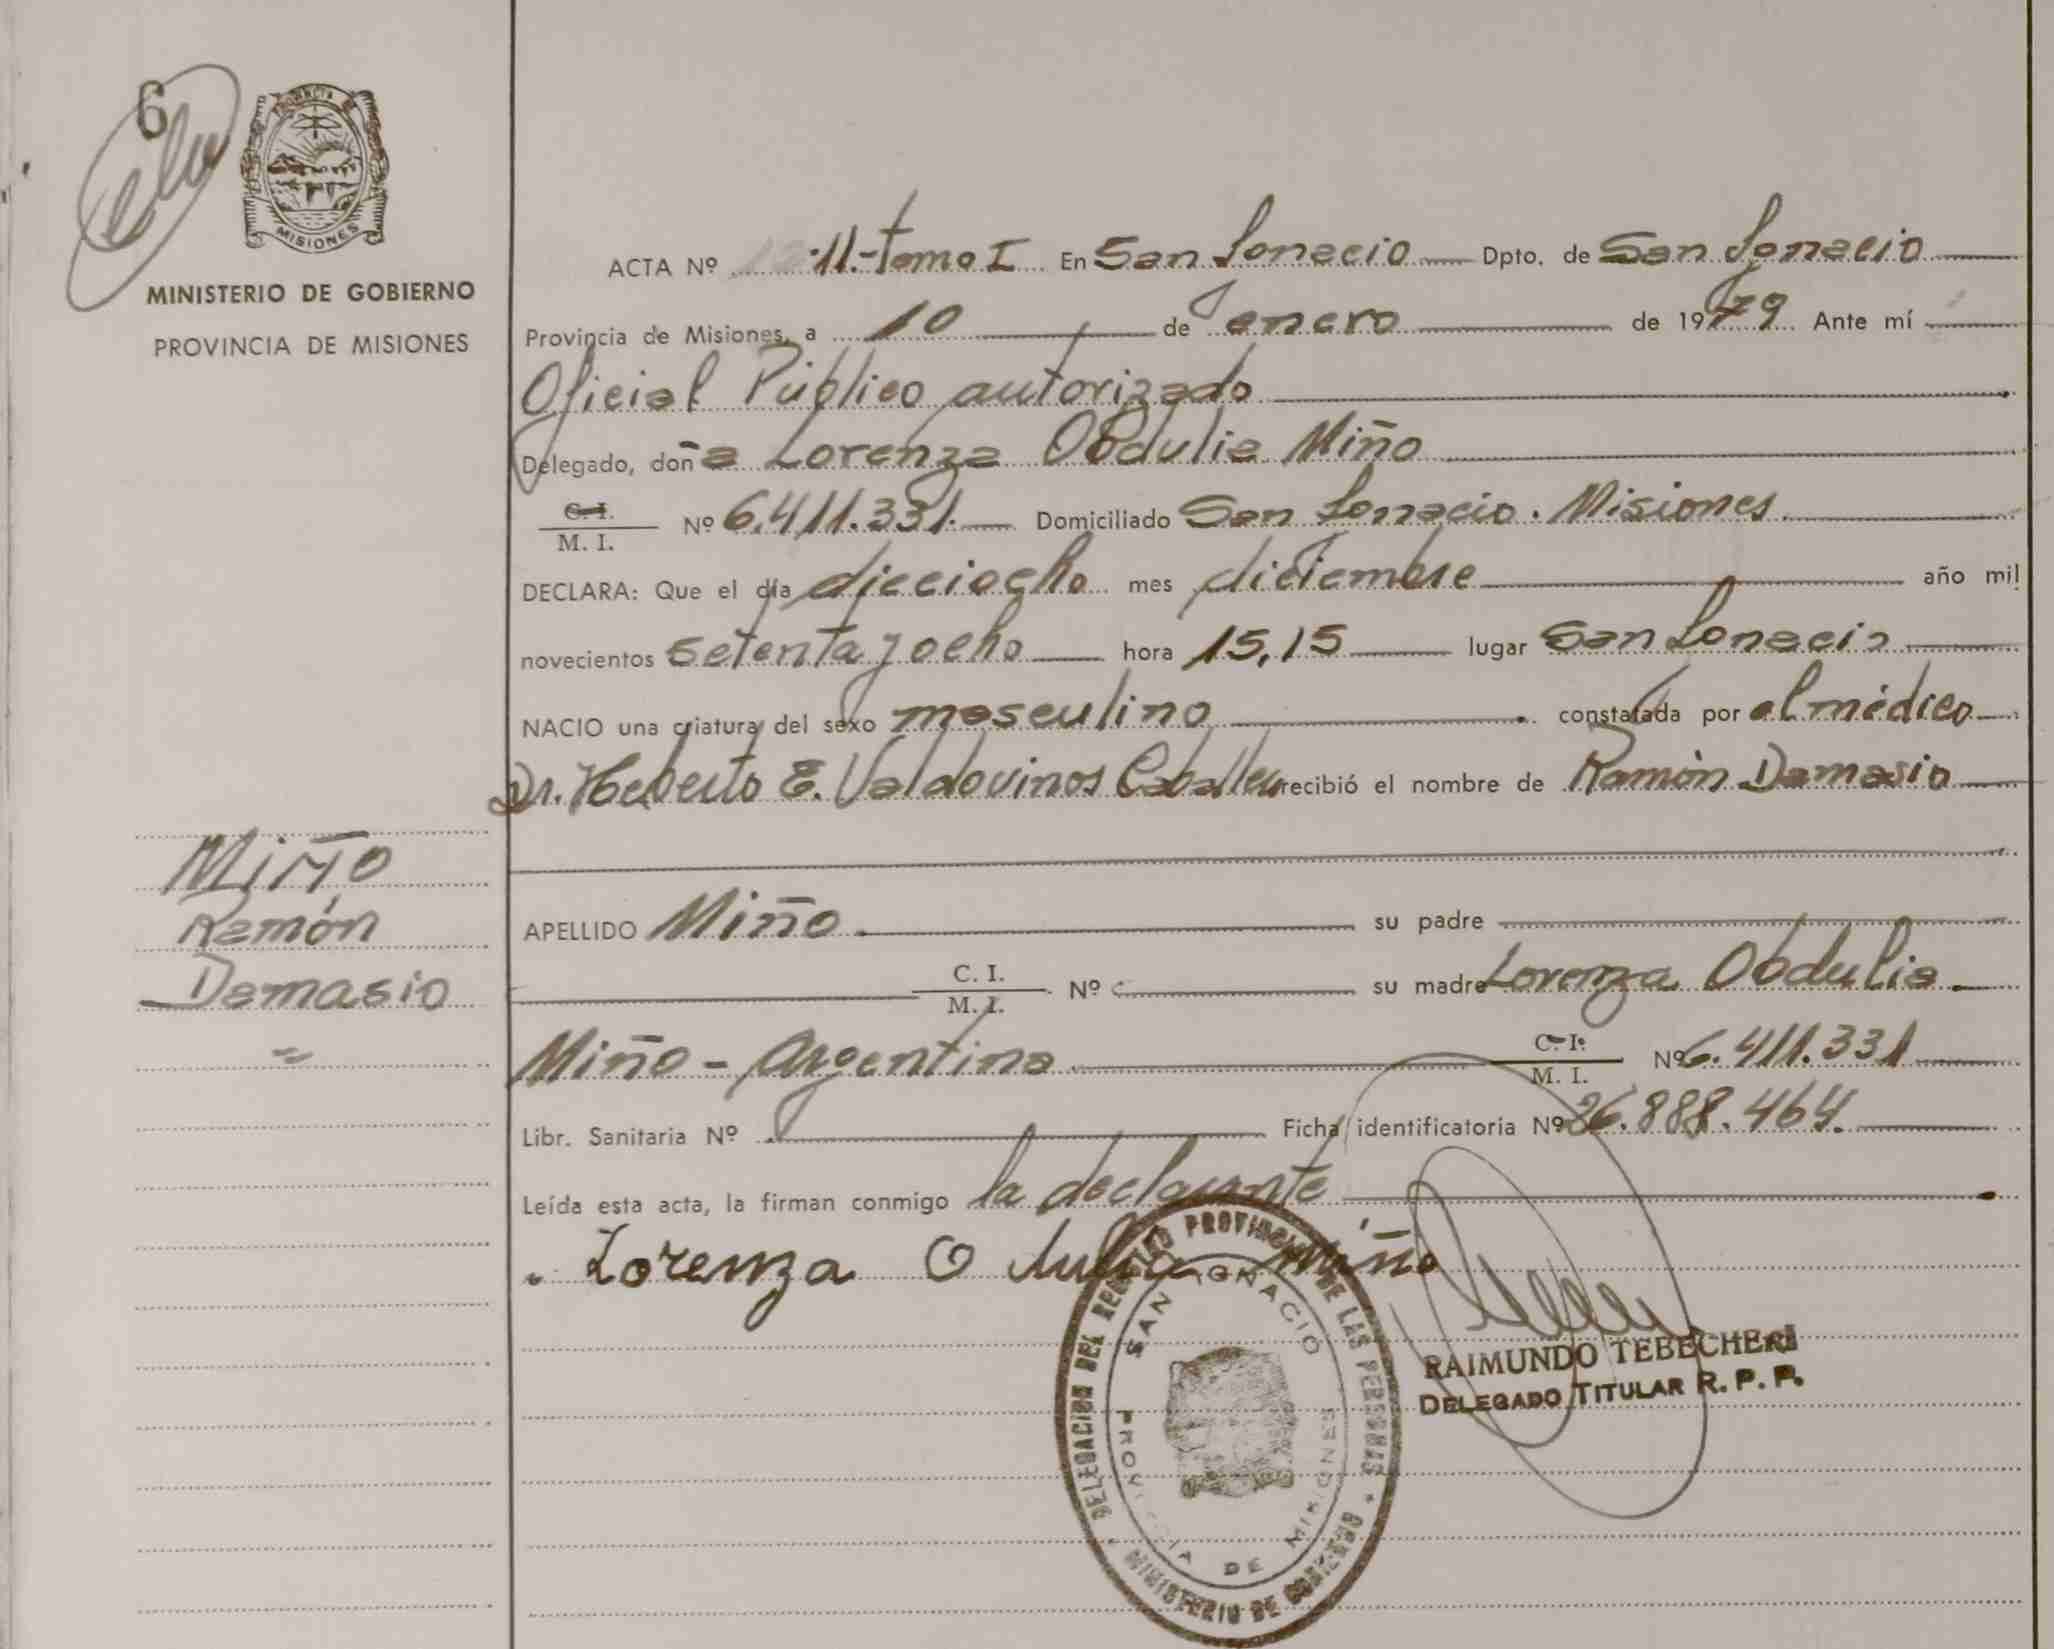 6
PROVINCIA DE
MISIONES
MINISTERIO DE GOBIERNO
PROVINCIA DE MISIONES
Miño
Ramón
Damasio
ACTA Nº 11.- Tomo I En San Ignacio Dpto. de San Ignacio
Provincia de Misiones, a 10 de enero de 1979 Ante mí
Oficial Público autorizado
Delegado, doña Lorenza Obdulia Miño
C. I.
M. I. Nº 6.411.331. Domiciliado San Ignacio. Misiones
DECLARA: Que el día dieciocho mes diciembre año mil
novecientos setenta y ocho hora 15,15 lugar San Ignacio
NACIO una criatura del sexo masculino constatada por el médico
Dr. Heberto E. Valdovinos Caballero recibió el nombre de Ramón Damasio
APELLIDO Miño su padre
C. I.
M. I. Nº su madre Lorenza Obdulia
Miño - Argentina C. I.
M. I. Nº 6.411.331
Libr. Sanitaria Nº Ficha identificatoria Nº 26.888.464.
Leída esta acta, la firman conmigo la declarante
Lorenza O dulia Miño
DELEGACION DEL REGISTRO PROVINCIAL DE LAS PERSONAS
SAN IGNACIO
PROVINCIA DE MISIONES
MINISTERIO DE GOBIERNO
RAIMUNDO TEBECHERI
DELEGADO TITULAR R. P. P.